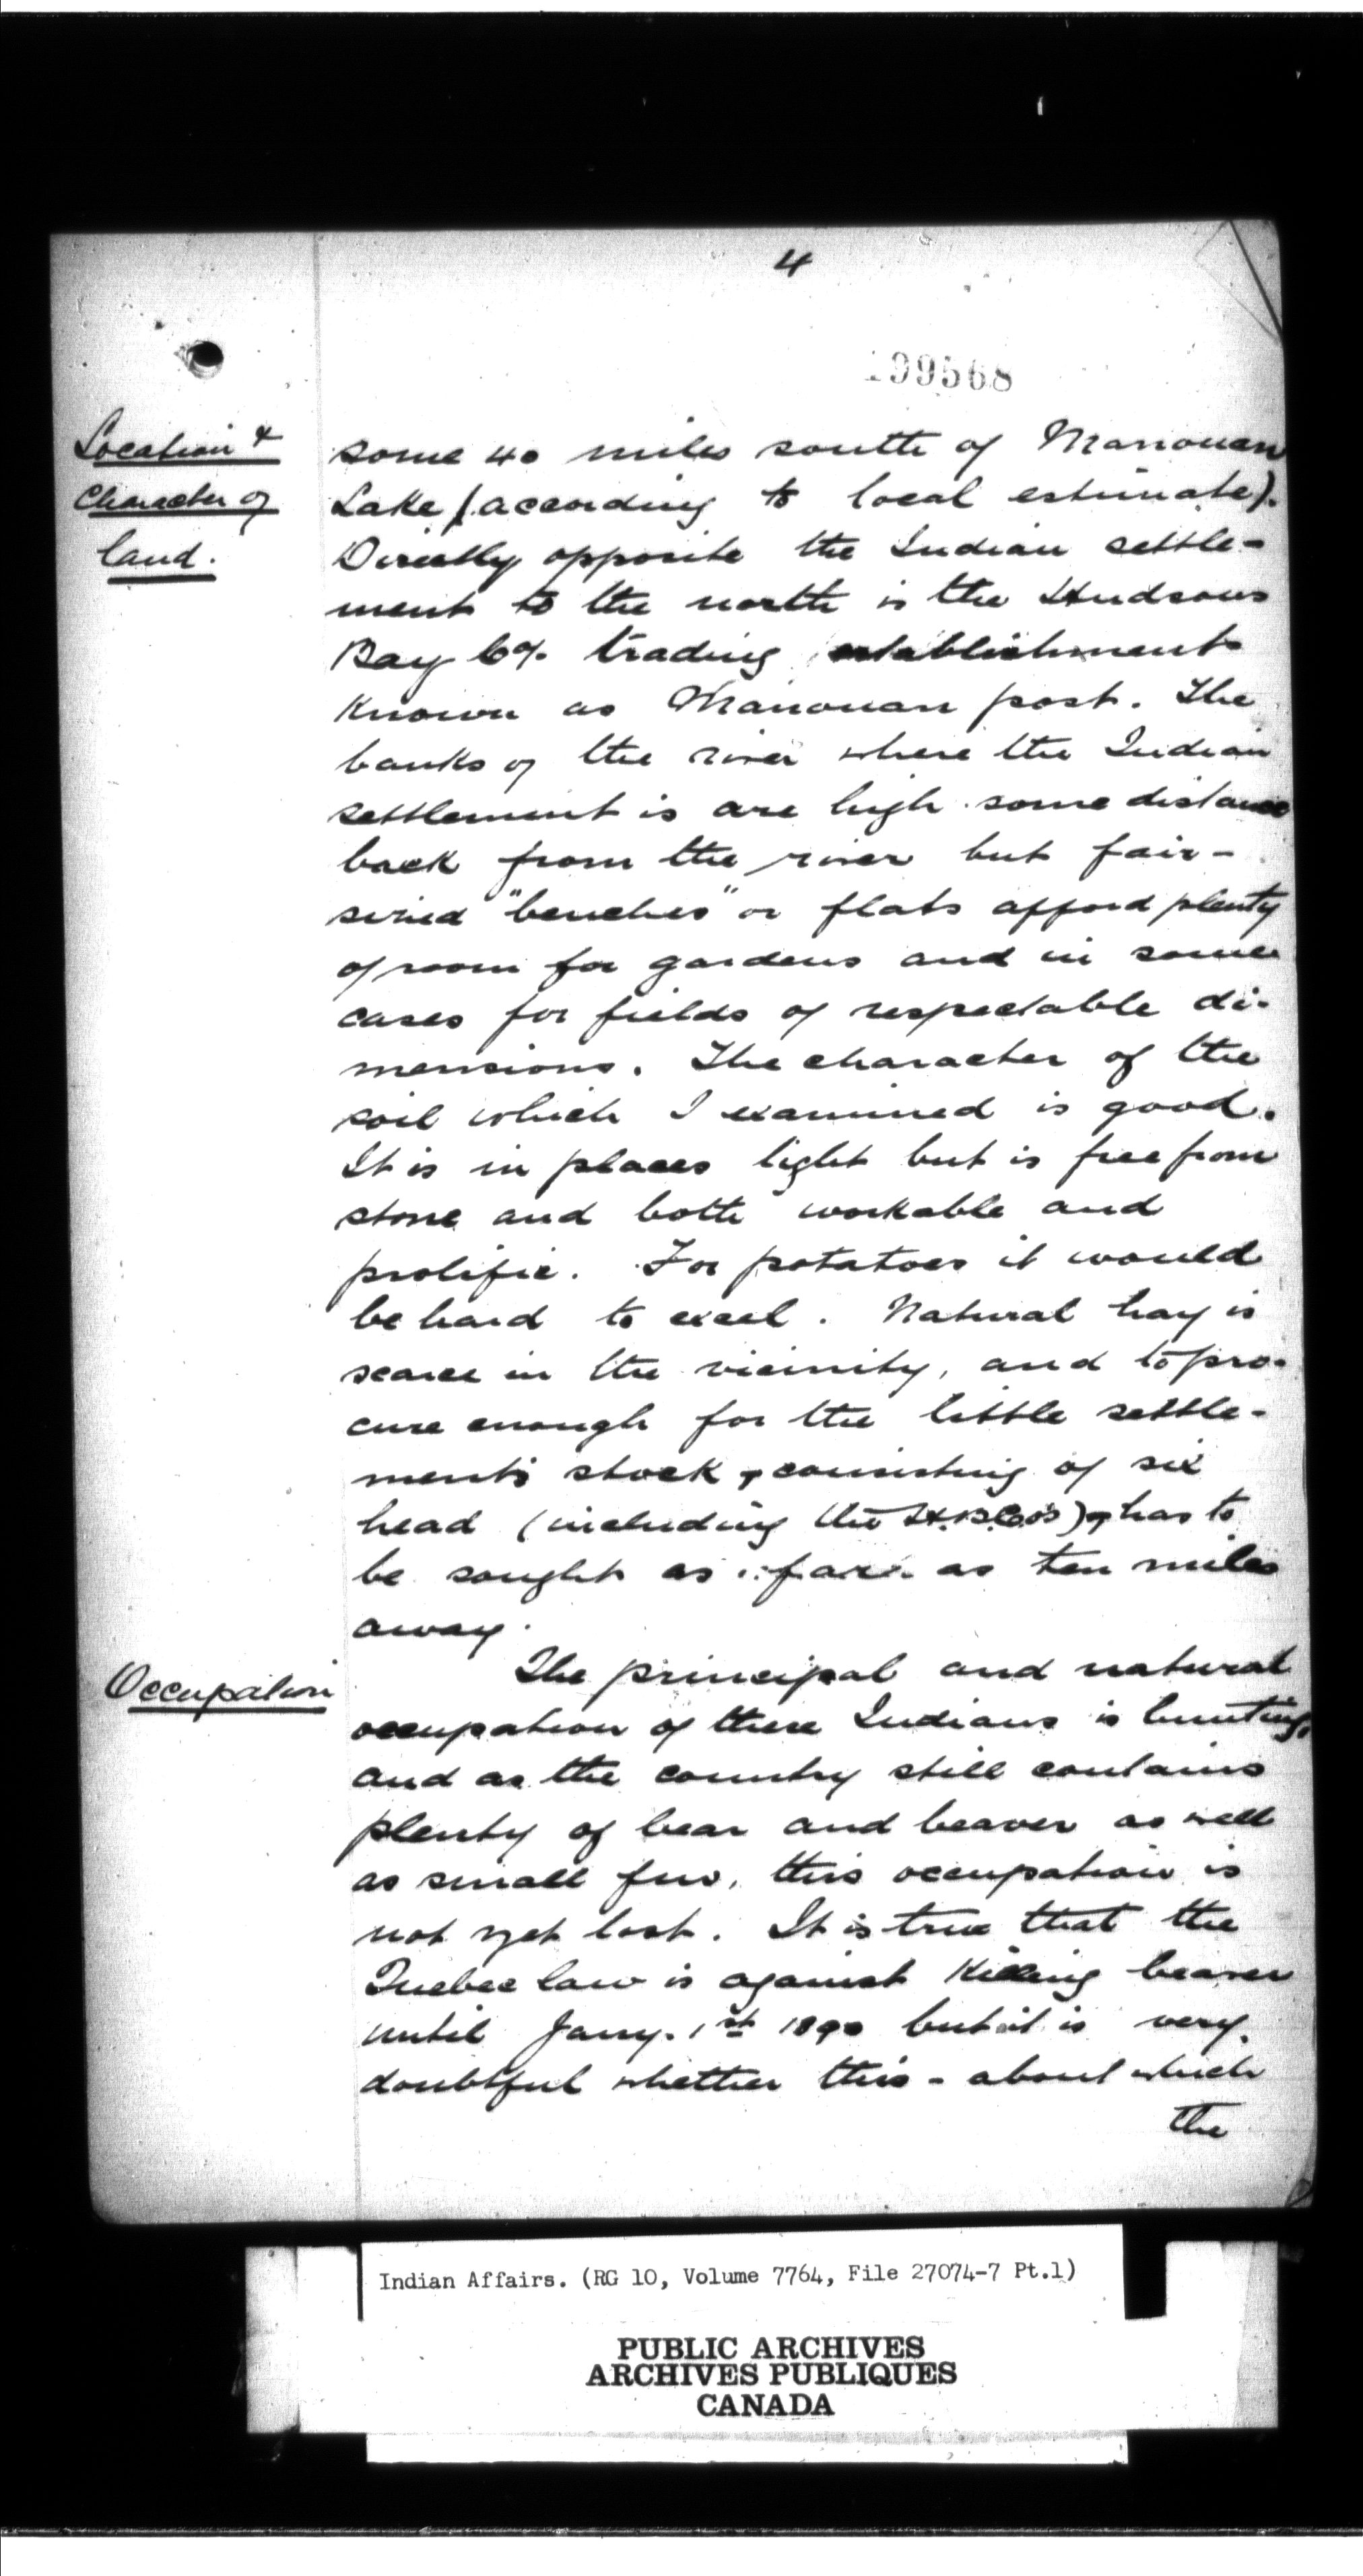 4
199568
Location &
Character of
land.
some 40 miles south of Manouan
Lake (according to local estimate).
Directly opposite the Indian settle-
ment to the north is the Hudsons
Bay Co. trading establishment
known as Manouan post. The
banks of the river where the Indian
settlement is are high some distance
back from the river but fair-
sized "benches" or flats afford plenty
of room for gardens and in some
cases for fields of respectable di-
mensions. The character of the
soil which I examined is good.
It is in places light but is free from
stone and both workable and
prolific. For potatoes it would
be hard to excel. Natural hay is
scarce in the vicinity, and to pro-
cure enough for the little settle-
ment's stock, consisting of six
head (including the H.B.Co's), has to
be sought as far as ten miles
away.
Occupation
The principal and natural
occupation of these Indians is hunting,
and as the country still contains
plenty of bear and beaver as well
as small fur, this occupation is
not yet lost. It is true that the
Quebec law is against killing beaver
until Jany. 1st 1890 but it is very
doubtful whether this - about which
the
Indian Affairs. (RG 10, Volume 7764, File 27074-7 Pt.1)
PUBLIC ARCHIVES
ARCHIVES PUBLIQUES
CANADA